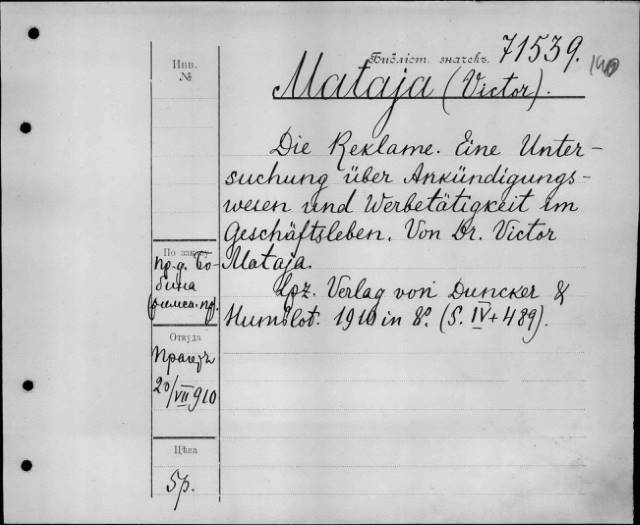 Инв.
№
Библіот. значекъ. 71539.
Mataja (Victor).
Die Reklame. Eine Unter-
suchung über Ankündigungs-
wesen und Werbetätigkeit im
Geschäftsleben. Von Dr. Victor
Mataja.
Lpz. Verlag von Duncker &
Humblot. 1910 in 8º. (S. IV + 489).
По заказу
пр.д. Бо-
бина
Откуда
20/VII 910
Цѣна
5р.